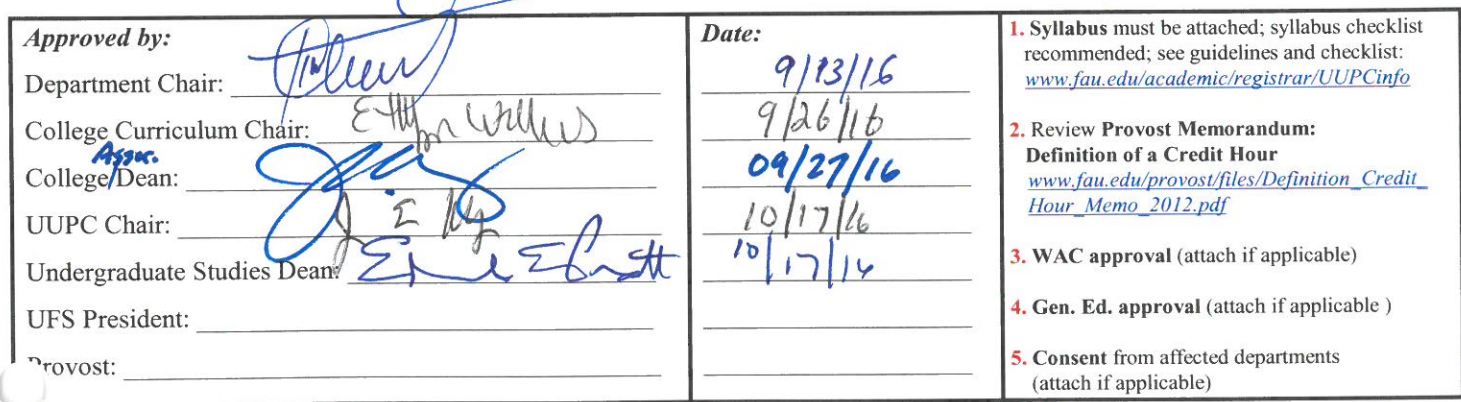 Approved by:
Department Chair:
College Curriculum Chair:
Assoc.
College/Dean:
UUPC Chair:
Undergraduate Studies Dean:
UFS President:
Provost:
Date:
9/13/16
9/26/16
09/27/16
10/17/16
10/17/16
1. Syllabus must be attached; syllabus checklist
recommended; see guidelines and checklist:
www.fau.edu/academic/registrar/UUPCinfo
2. Review Provost Memorandum:
Definition of a Credit Hour
www.fau.edu/provost/files/Definition_Credit_
Hour_Memo_2012.pdf
3. WAC approval (attach if applicable)
4. Gen. Ed. approval (attach if applicable )
5. Consent from affected departments
(attach if applicable)